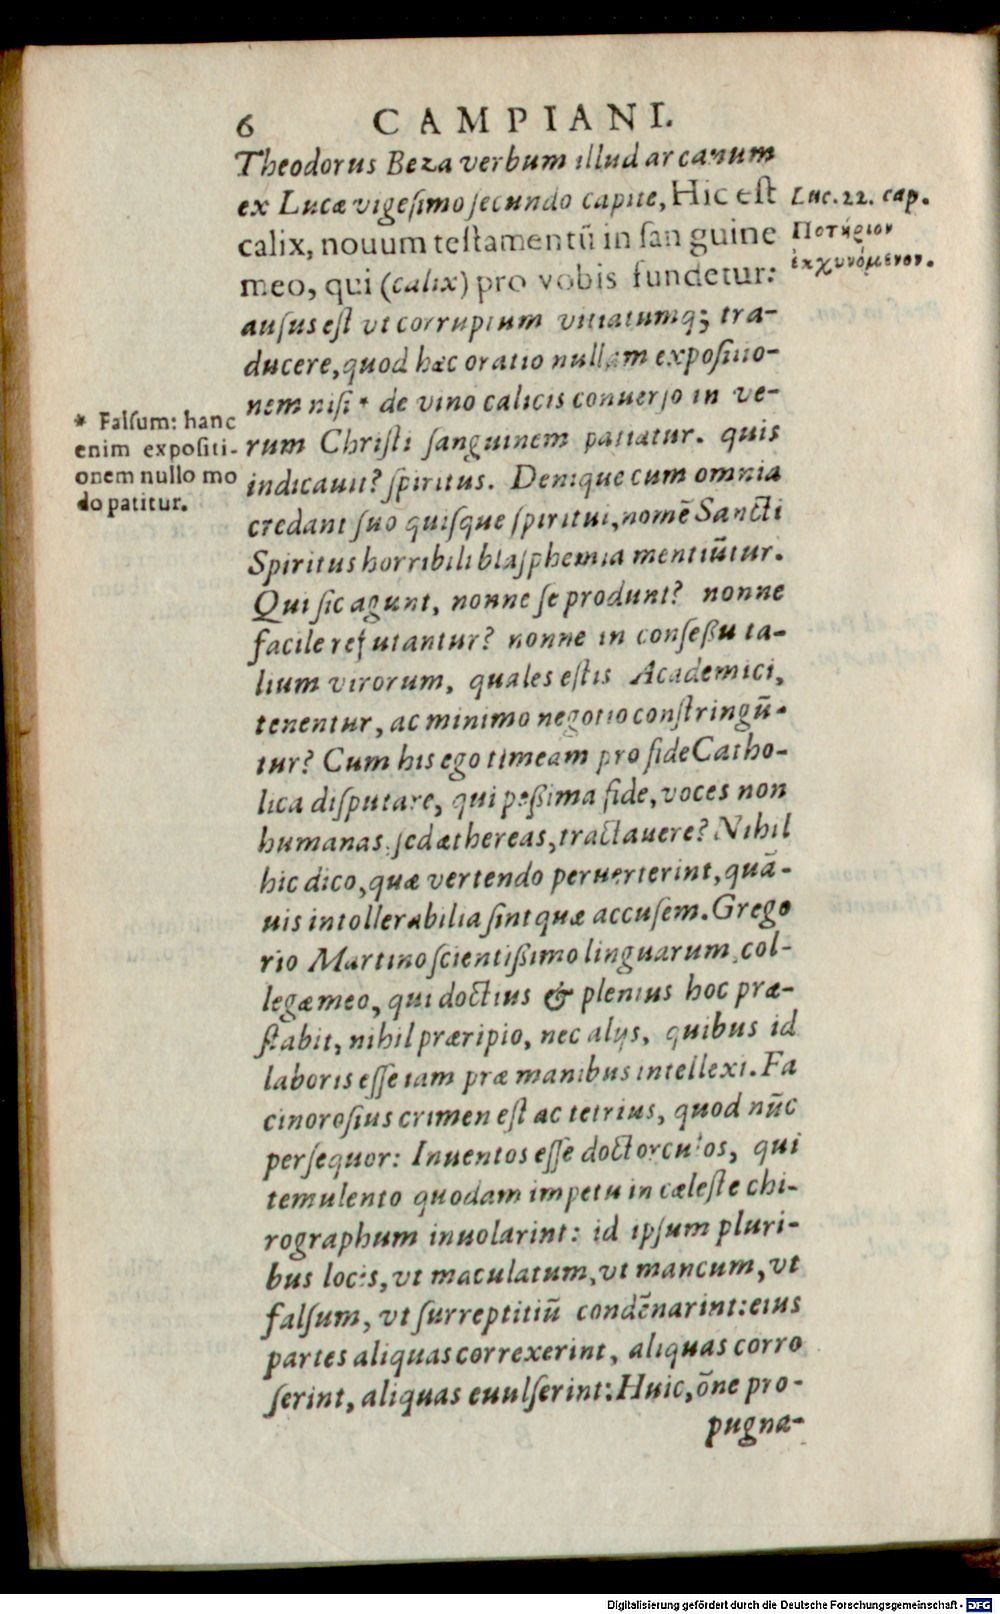 6 CAMPIANI.
Theodorus Beza verbum illud arcanum
ex Lucæ vigesimo secundo capite, Hic est
calix, nouum testamentũ in san guine
meo, qui (calix) pro vobis fundetur:
ausus est vt corruptum vitiatumq; tra-
ducere, quod hæc oratio nullam expositio-
nem nisi * de vino calicis conuerso in ve-
rum Christi sanguinem patiatur. quis
indicauit? spiritus. Denique cum omnia
credant suo quisque spiritui, nomẽ Sancti
Spiritus horribili blasphemia mentiũtur.
Qui sic agunt, nonne se produnt? nonne
facile refutantur? nonne in conseßu ta-
lium virorum, quales estis Academici,
tenentur, ac minimo negotio constringũ-
tur? Cum his ego timeam pro fide Catho-
lica disputare, qui peßima fide, voces non
humanas, sed æthereas, tractauere? Nihil
hic dico, quæ vertendo peruerterint, quã-
uis intollerabilia sint quæ accusem. Grego
rio Martino scientißimo linguarum, col-
legæ meo, qui doctius & plenius hoc præ-
stabit, nihil præripio, nec alijs, quibus id
laboris esse iam præ manibus intellexi. Fa
cinorosius crimen est ac tetrius, quod nũc
persequor: Inuentos esse doctorculos, qui
temulento quodam impetu in cæleste chi-
rographum inuolarint: id ipsum pluri-
bus locis, vt maculatum, vt mancum, vt
falsum, vt surreptitiũ condẽnarint: eius
partes aliquas correxerint, aliquas corro
serint, aliquas euulserint: Huic, õne pro-
pugna-
Luc. 22. cap.
Ποτήριον
ἐκχυνόμενον.
* Falsum: hanc
enim expositi-
onem nullo mo
do patitur.
Digitalisierung gefördert durch die Deutsche Forschungsgemeinschaft - DFG